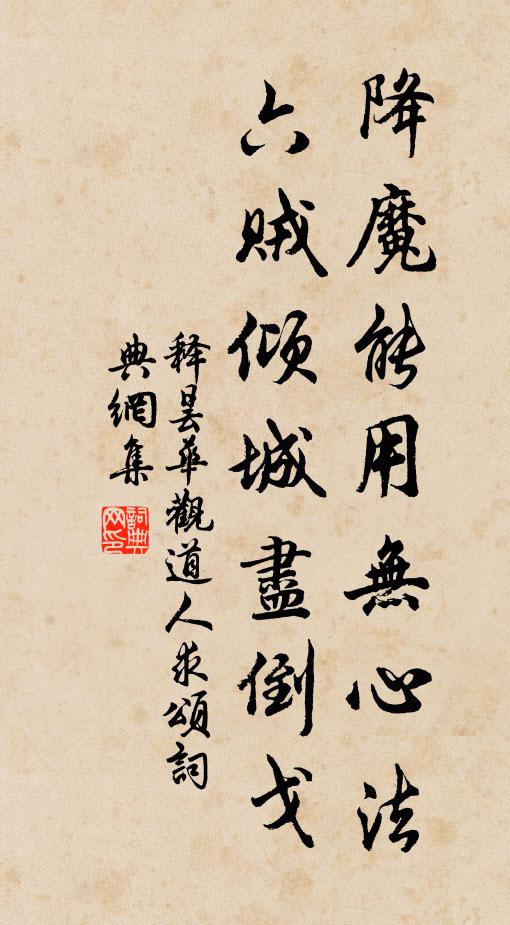 降魔能用無心法
六賊傾城盡倒戈
释曇華觀道人求頌詞
典網集
詞典网印